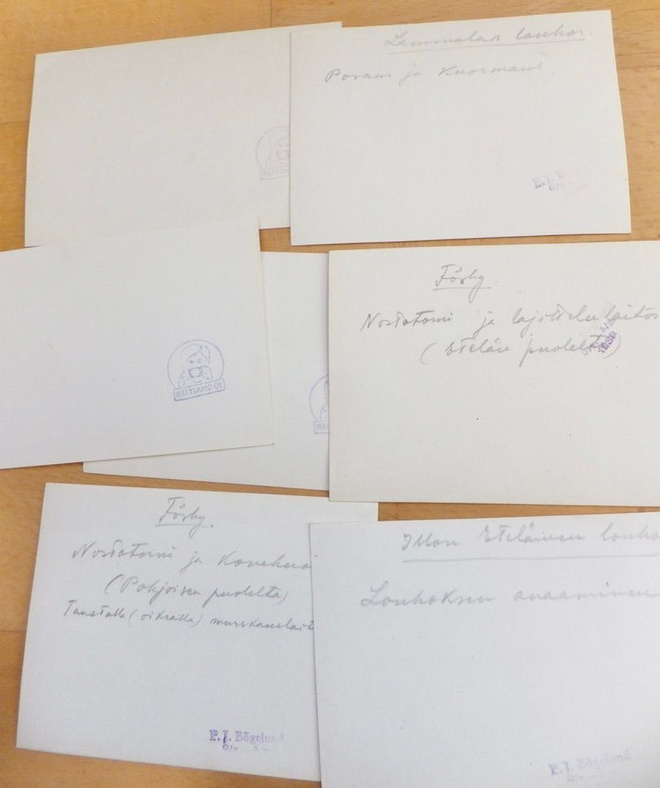 Lammalan louhos.
Poraus ja Kuormaus
Förby.
Nostotorni ja lajittelulaitos
(Etelän puolelta)
Förby.
Nostotorni ja Konehuo
(Pohjoisen puolelta)
Taustalla (oikealla) murskauslait
P. J. Bögelund
Eteläinen louho
Louhoksen avaaminen
P. J. Bögelund